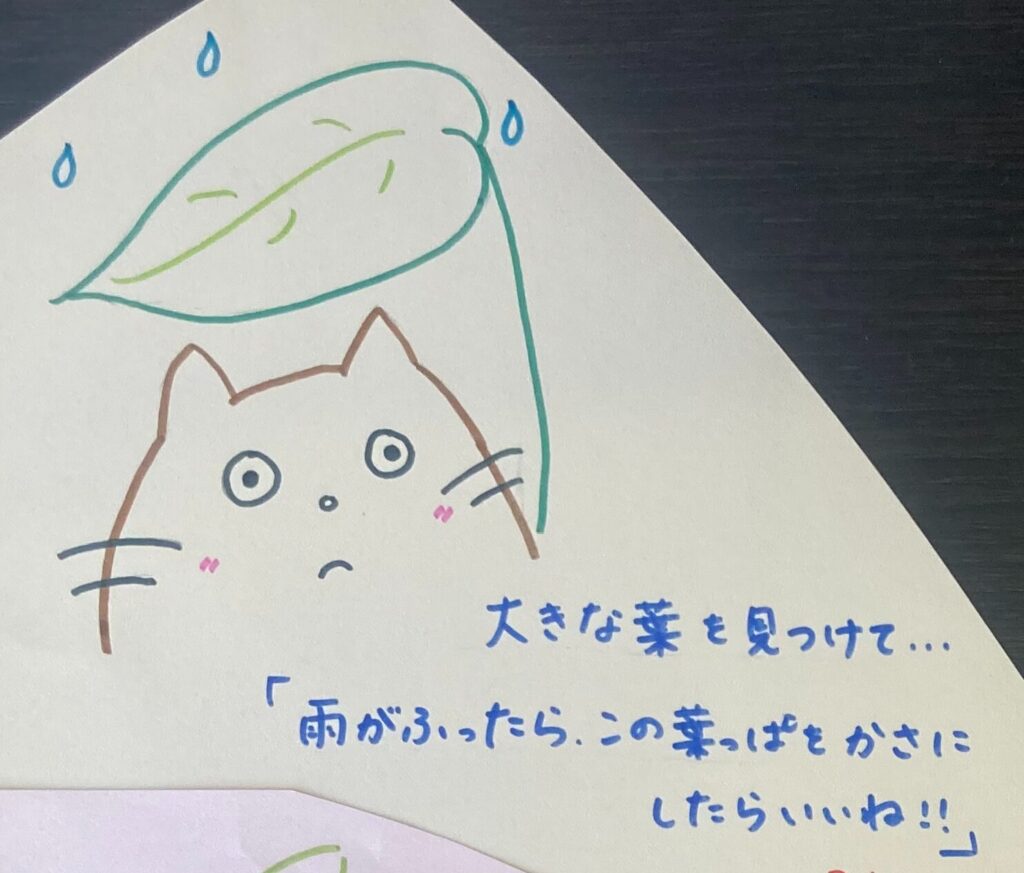 大きな葉を見つけて...
「雨がふったら、この葉っぱをかさに
したらいいね!!」